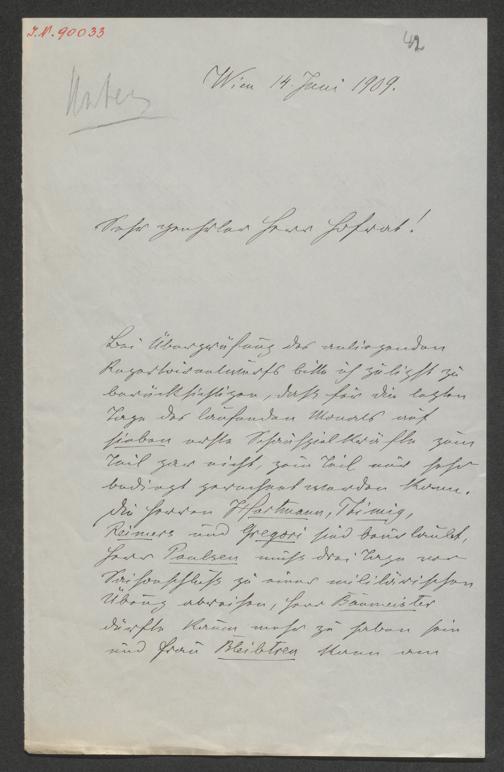 I.N. 90033
42
Wien 14. Juni 1909.
Sehr geehrter Herr Hofrat!
Bei Überprüfung des anliegenden
Repertoireentwurfs bitte ich gütigst zu
berücksichtigen, daß für die letzten
Tage des laufenden Monats auf
sieben erste Schauspielkräfte zum
Teil gar nicht, zum Teil nur sehr
bedingt gerechnet werden kann.
Die Herren Hartmann, Thimig,
Reimers und Gregori sind beurlaubt,
Herr Paulsen muß drei Tage vor
Saisonschluß zu einer militärischen
Übung abreisen, Herr Baumeister
dürfte kaum mehr zu haben sein
und Frau Bleibtreu kann am